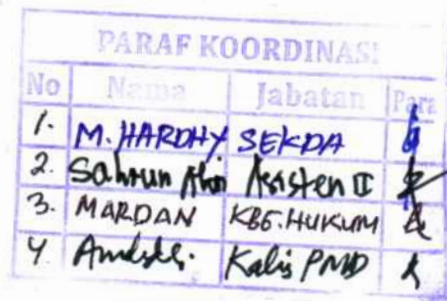 PARAF KOORDINASI
No Nama Jabatan Para
1. M. HARDHY SEKDA
2. Sahrun Asisten II
3. MARDAN KBG. HUKUM
4. PMD